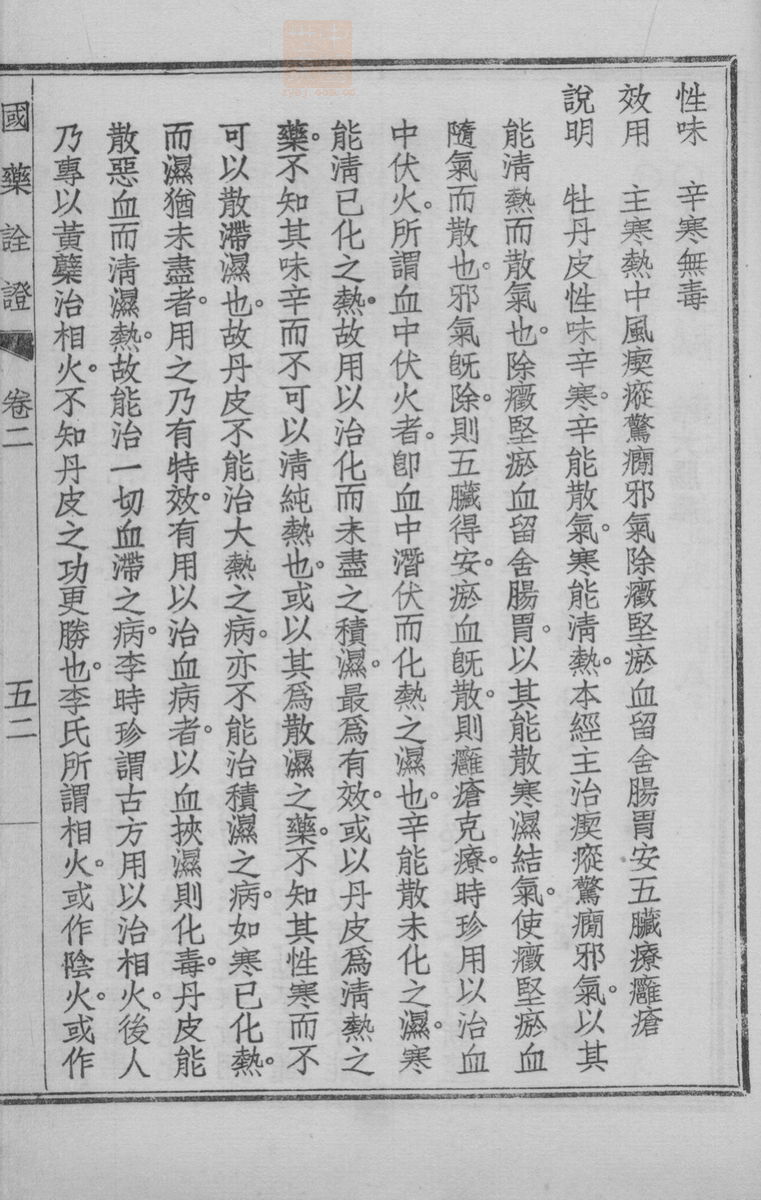 性味　辛寒無毒
效用　主寒熱中風瘈瘲驚癇邪氣除癥堅瘀血留舍腸胃安五臟療癰瘡
說明　牡丹皮性味辛寒。辛能散氣。寒能清熱。本經主治瘈瘲驚癇邪氣。以其
能清熱而散氣也。除癥堅瘀血留舍腸胃。以其能散寒濕結氣。使癥堅瘀血
隨氣而散也。邪氣旣除。則五臟得安。瘀血旣散。則癰瘡克療。時珍用以治血
中伏火。所謂血中伏火者。卽血中潛伏而化熱之濕也。辛能散未化之濕。寒
能清已化之熱。故用以治化而未盡之積濕。最爲有效。或以丹皮爲淸熱之
藥。不知其味辛而不可以清純熱也。或以其爲散濕之藥。不知其性寒而不
可以散滯濕也。故丹皮不能治大熱之病。亦不能治積濕之病。如寒已化熱。
而濕猶未盡者。用之乃有特效。有用以治血病者。以血挾濕則化毒。丹皮能
散惡血而清濕熱。故能治一切血滯之病。李時珍謂古方用以治相火。後人
乃專以黃蘗治相火。不知丹皮之功更勝也。李氏所謂相火。或作陰火。或作
國藥詮證　卷二　五二